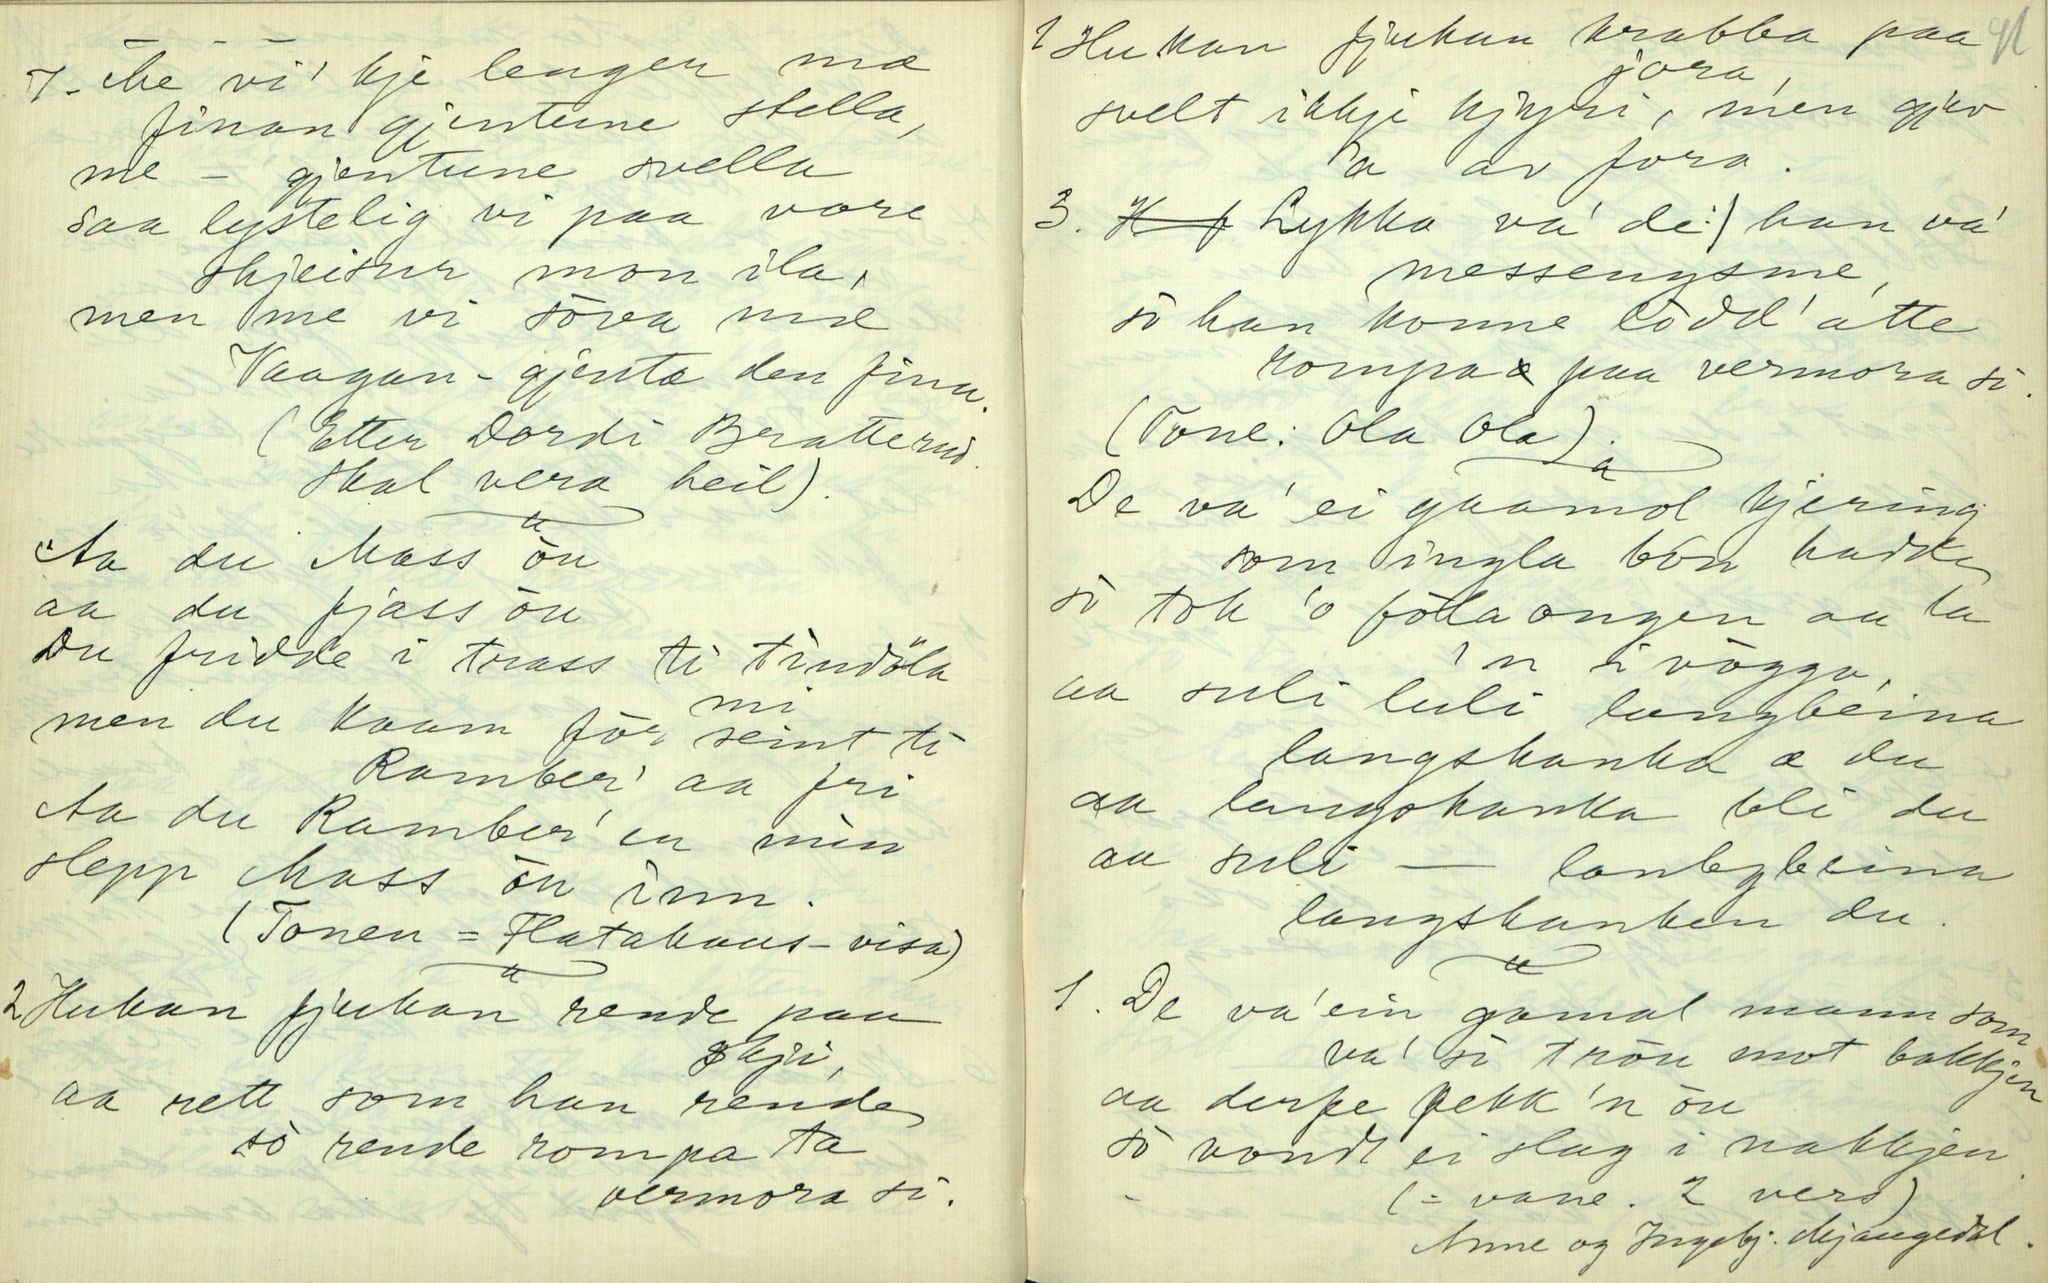 7. Me vi' kje lenger mæ
finan gjentune stella,
me – gjentune svella
saa lystelig vi paa vore
skjeisur mon ila,
men me vi söva mæ
Vaagan-gjenta den fina.
(Etter Dordi Bratterud.
skal vera heil).
Aa du Mass ön
aa du fjass ön
Du fridde i trass ti tindöla
mi
men du kaam för seint ti
Ramber' aa fri
Aa du Ramber'en min
slepp Mass ön inn.
(Tonen = Flatakaas-visa)
2 Hukan fjukan rende paa
skji,
aa rett som han rende
sò rende rompa ta
vermora si.
91
1 Hukan fjukan krabba paa
jora,
svelt ikkje kjyri, men gjev
'a av fora.
3. Lykka va' de :/ han va'
messengsme,
sò han konne lödd' atte
rompa paa vermora si.
(Tone: Ola Ola).
De va' ei gaamol kjering
som ingla bón hadde
sò tok 'o fóla ongen aa la
'n i vögga,
aa suli luli langbeina
langskanka æ du
aa langskanka bli du
aa suli — langbeina
langskanken du.
1. De va' ein gamal mann som
va' si trön mot bakkjen
aa derfe fekk 'n ön
sò vondt ei slag i nakkjen.
(= vane. 2 vers)
Anne og Ingebj. Mjaugedal.